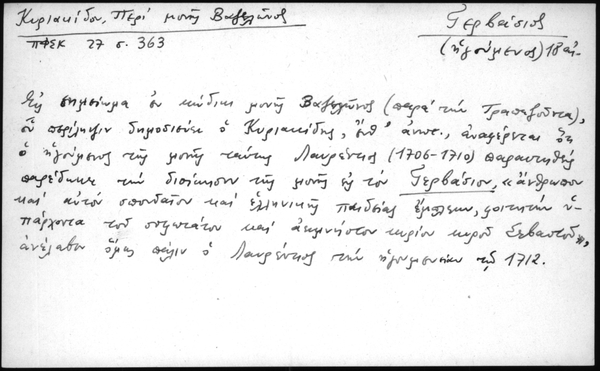 Κυριακίδου, Περί μονής Βαζελώνος
ΠΦΕΚ 27 σ. 363
Γερβάσιος
(ἡγούμενος) 18 αἰ.
Εἰς σημείωμα ἐν κώδικι μονῆς Βαζελῶνος (παρά τήν Τραπεζοῦντα),
οὗ περίληψιν δημοσιεύει ὁ Κυριακίδης, ἔνθ' ἀνωτ., ἀναφέρεται ὅτι
ὁ ἡγούμενος τῆς μονῆς ταύτης Λαυρέντιος (1706-1710) παραιτηθείς
παρέδωκε τήν διοίκησιν τῆς μονῆς εἰς τόν Γερβάσιον, «ἄνθρωπον
καί αὐτόν σπουδαῖον καί ἑλληνικῆς παιδείας ἔμπλεων, φοιτητήν ὑ-
πάρχοντα τοῦ σοφωτάτου καί ἀειμνήστου κυρίου κυροῦ Σεβαστοῦ»,
ἀνέλαβεν ὅμως πάλιν ὁ Λαυρέντιος τήν ἡγουμενείαν τῷ 1712.